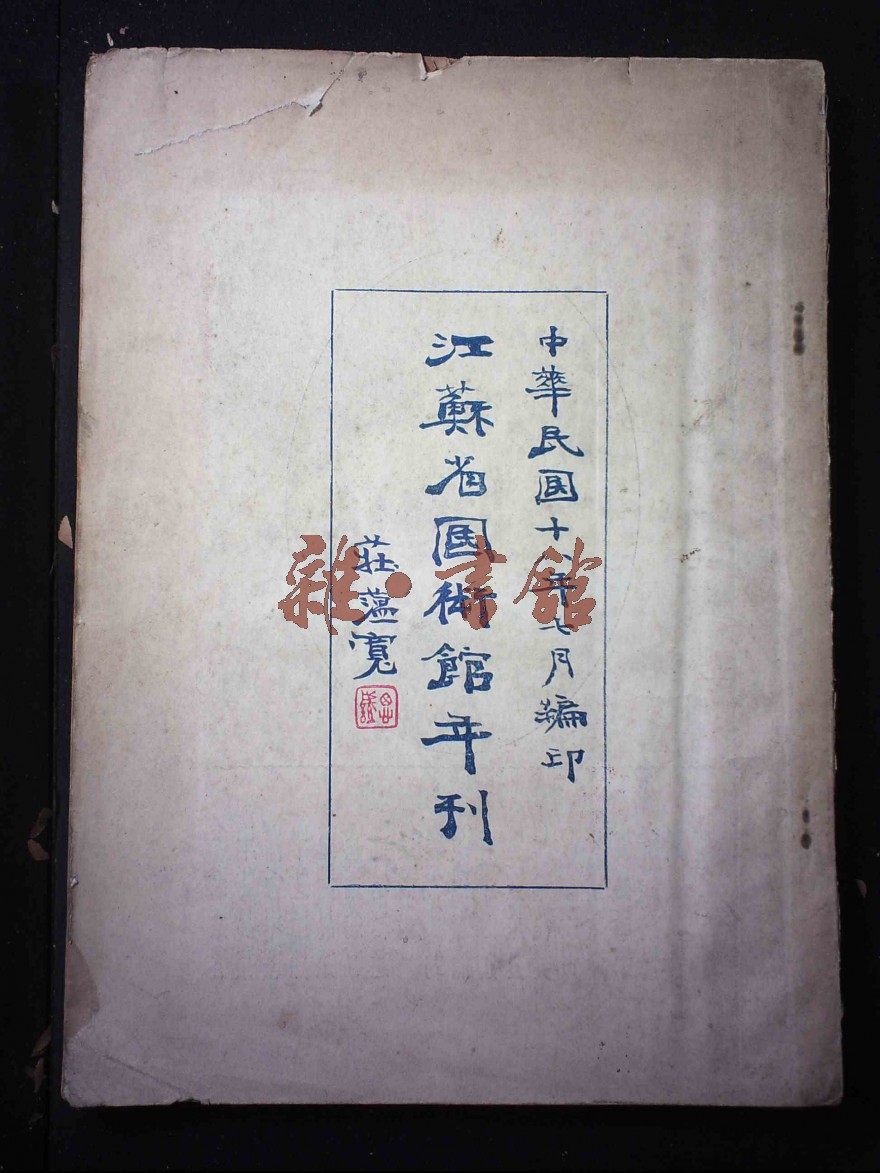 中華民国十八年七月編印
江蘇省國術館年刊
莊蘊寬
雜·書館